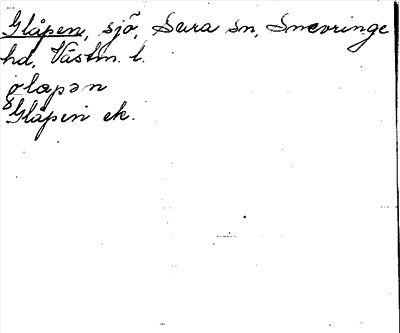 Glåpen, sjö, Sura sn, Snevringe
hd, Västm. l.
glapən
Glåpen ek.